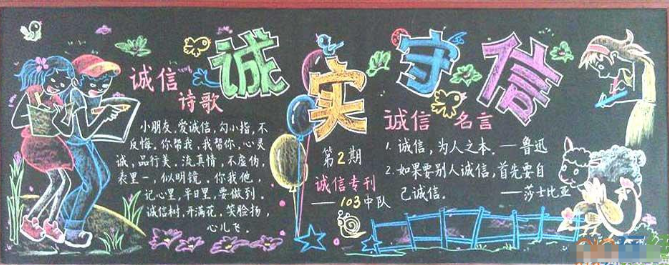 诚实守信
诚信
诗歌
小朋友,爱诚信,勾小指,不
反悔,你帮我,我帮你,心灵
诚,品行美,流真情,不虚伪,
表里一,似明镜,你我他,
记心里,平日里,要做到。
诚信树,开满花,笑脸扬,
心儿飞。
第2期
诚信专刊
——103中队
诚信 名言
1. 诚信,为人之本。——鲁迅
2. 如果要别人诚信,首先要自
己诚信。 ——莎士比亚